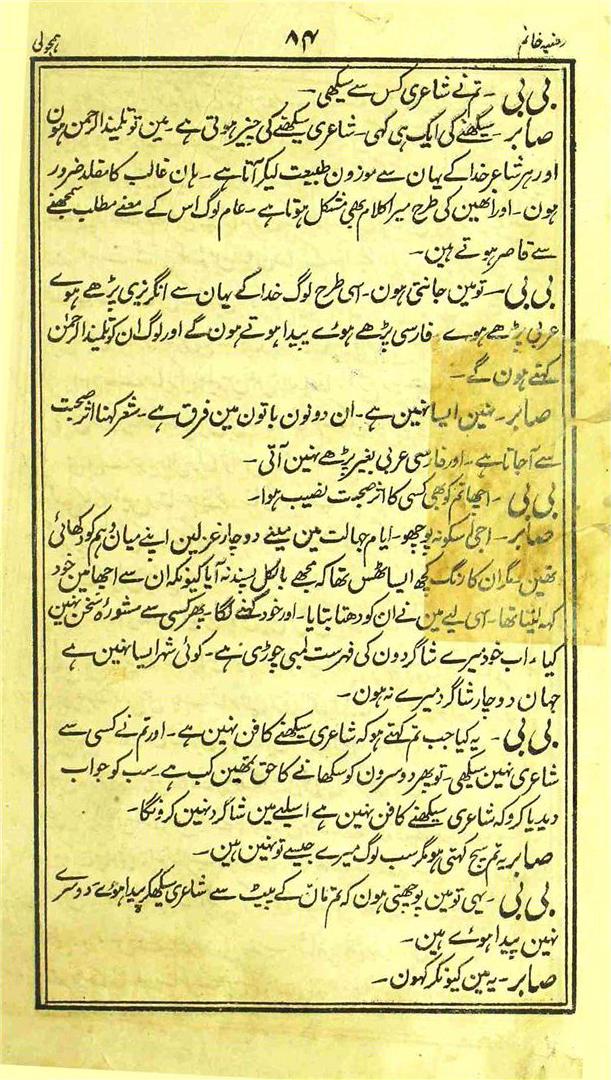 رضیہ خانم ۸۴ ہمجولی
بی بی ۔ تم نے شاعری کس سے سیکھی ۔
صابر ۔ سیکھنے کی ایک ہی کہی ۔ شاعری سیکھنے کی چیز ہوتی ہے ۔ مین تو تلمیذ الرحمن ہون
اور ہر شاعر خدا کے یہان سے موزون طبیعت لیکر آتا ہے ۔ ہان غالب کا مقلد ضرور
ہون ۔ اور انھین کی طرح میرا کلام بھی مشکل ہوتا ہے ۔ عام لوگ اس کے معنے مطلب سمجھنے
سے قاصر ہوتے ہین ۔
بی بی ۔ تو مین جانتی ہون ۔ اسی طرح لوگ خدا کے یہان سے انگریزی پڑھے ہوے
عربی پڑھے ہوے ۔ فارسی پڑھے ہوئے پیدا ہوتے ہون گے اور لوگ ان کو تلمیذ الرحمٰن
کہتے ہون گے ۔
صابر ۔ نہین ایسا نہین ہے ۔ ان دونون باتون مین فرق ہے ۔ شعر کہنا اثر صحبت
سے آجاتا ہے ۔ اور فارسی عربی بغیر پڑھے نہین آتی ۔
بی بی ۔ اچھا تم کو بھی کسی کا اثر صحبت نصیب ہوا ۔
صابر ۔ اجی اسکو نہ پوچھو ۔ ایام جہالت مین مینے دو چار غزلین اپنے میان وہم کو دکھائی
تھین مگر ان کا رنگ کچھ ایسا ٹھس تھا کہ مجھے بالکل پسند نہ آیا کیونکہ ان سے اچھا مین خود
کہہ لیتا تھا ۔ اسی لیے مین نے ان کو دھتا بتایا ۔ اور خود کہنے لگا ۔ پھر کسی سے مشورۂ سخن نہین
کیا ۔ اب خود میرے شاگردون کی فہرست لمبی چوڑی ہے ۔ کوئی شہر ایسا نہین ہے
جہان دو چار شاگرد میرے نہ ہون ۔
بی بی ۔ یہ کیا جب تم کہتے ہو کہ شاعری سیکھنے کا فن نہین ہے ۔ اور تم نے کسی سے
شاعری نہین سیکھی ۔ تو پھر دوسرون کو سکھانے کا حق تمھین کب ہے سب کو جواب
دیدیا کرو کہ شاعری سیکھنے کا فن نہین ہے اسلیے مین شاگرد نہین کرونگا ۔
صابر یہ تم سچ کہتی ہو مگر سب لوگ میرے جیسے تو نہین ہین ۔
بی بی ۔ یہی تو مین پوچھتی ہون کہ تم مان کے پیٹ سے شاعری سیکھکر پیدا ہوے دوسرے
نہین پیدا ہوئے ہین ۔
صابر ۔ یہ مین کیونکر کہون ۔